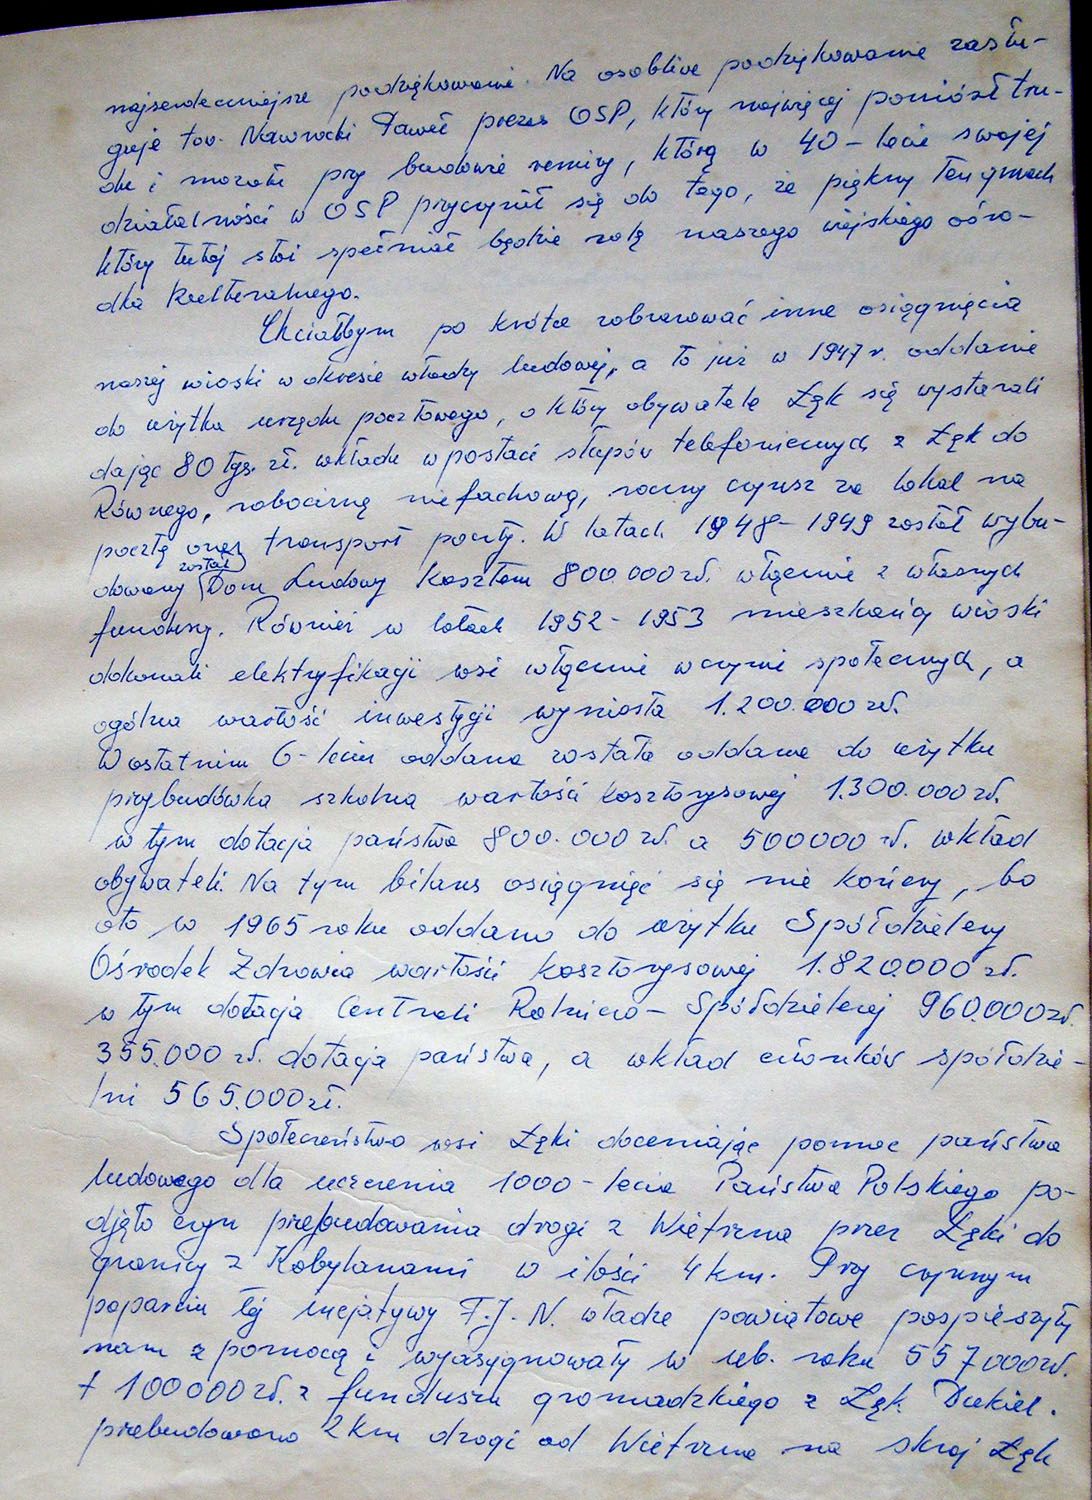 najserdeczniejsze podziękowanie. Na osobliwe podziękowanie zasłu-
guje tow. Nawrocki Paweł prezes OSP, który najwięcej poniósł tru-
du i mozołu przy budowie remizy, którą w 40-lecie swojej
działalności w OSP przyczynił się do tego, że piękny ten gmach
który tutaj stoi spełniał będzie rolę naszego wiejskiego ośro-
dka kulturalnego.
Chciałbym po krótce zobrazować inne osiągnięcia
naszej wioski w okresie władzy ludowej, a to już w 1947 r. oddanie
do użytku urzędu pocztowego, o który obywatele Łęk się wystarali
dając 80 tys. zł. wkładu w postaci słupów telefonicznych z Łęk do
Równego, robocizną niefachową, roczny czynsz za lokal na
pocztę oraz transport poczty. W latach 1948-1949 został wybu-
dowany został Dom Ludowy kosztem 800.000 zł. włącznie z własnych
funduszy. Również w latach 1952-1953 mieszkańcy wioski
dokonali elektryfikacji wsi włącznie w czynie społecznych, a
ogólna wartość inwestycji wyniosła 1.200.000 zł.
W ostatnim 6-leciu oddana została oddana do użytku
przybudówka szkolna wartości kosztorysowej 1.300.000 zł.
w tym dotacja państwa 800.000 zł. a 500000 zł. wkład
obywateli. Na tym bilans osiągnięć się nie kończy, bo
oto w 1965 roku oddano do użytku Spółdzielczy
Ośrodek Zdrowia wartości kosztorysowej 1.820.000 zł.
w tym dotacja Centrali Rolniczo-Spółdzielczej 960.000 zł.
355.000 zł. dotacja państwa, a wkład członków spółdzie-
lni 565.000 zł.
Społeczeństwo wsi Łęki doceniając pomoc państwa
ludowego dla uczczenia 1000-lecia Państwa Polskiego po-
djęło czyn przebudowania drogi z Wietrzna przez Łęki do
granicy z Kobylanami w ilości 4 km. Przy czynnym
poparciu tej inicjatywy F.J.N. władze powiatowe pospieszyły
nam z pomocą i wyasygnowały w ub. roku 557000 zł.
+ 100000 zł. z funduszu gromadzkiego z Łęk Dukiel.
przebudowano 2 km drogi od Wietrzna na skraj Łęk